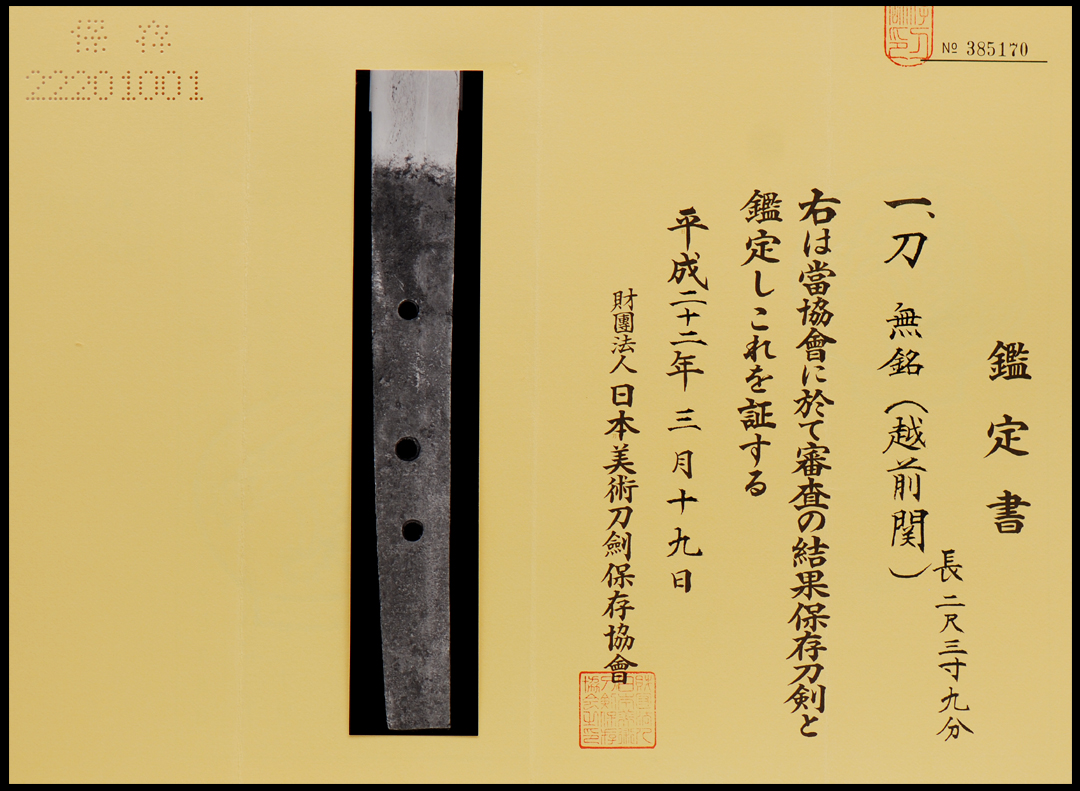 保存
22201001
№ 385170
鑑定書
一、刀 無銘（越前関）
長二尺三寸九分
右は當協會に於て審査の結果保存刀剣と
鑑定しこれを証する
平成二十二年三月十九日
財團法人日本美術刀劍保存協會